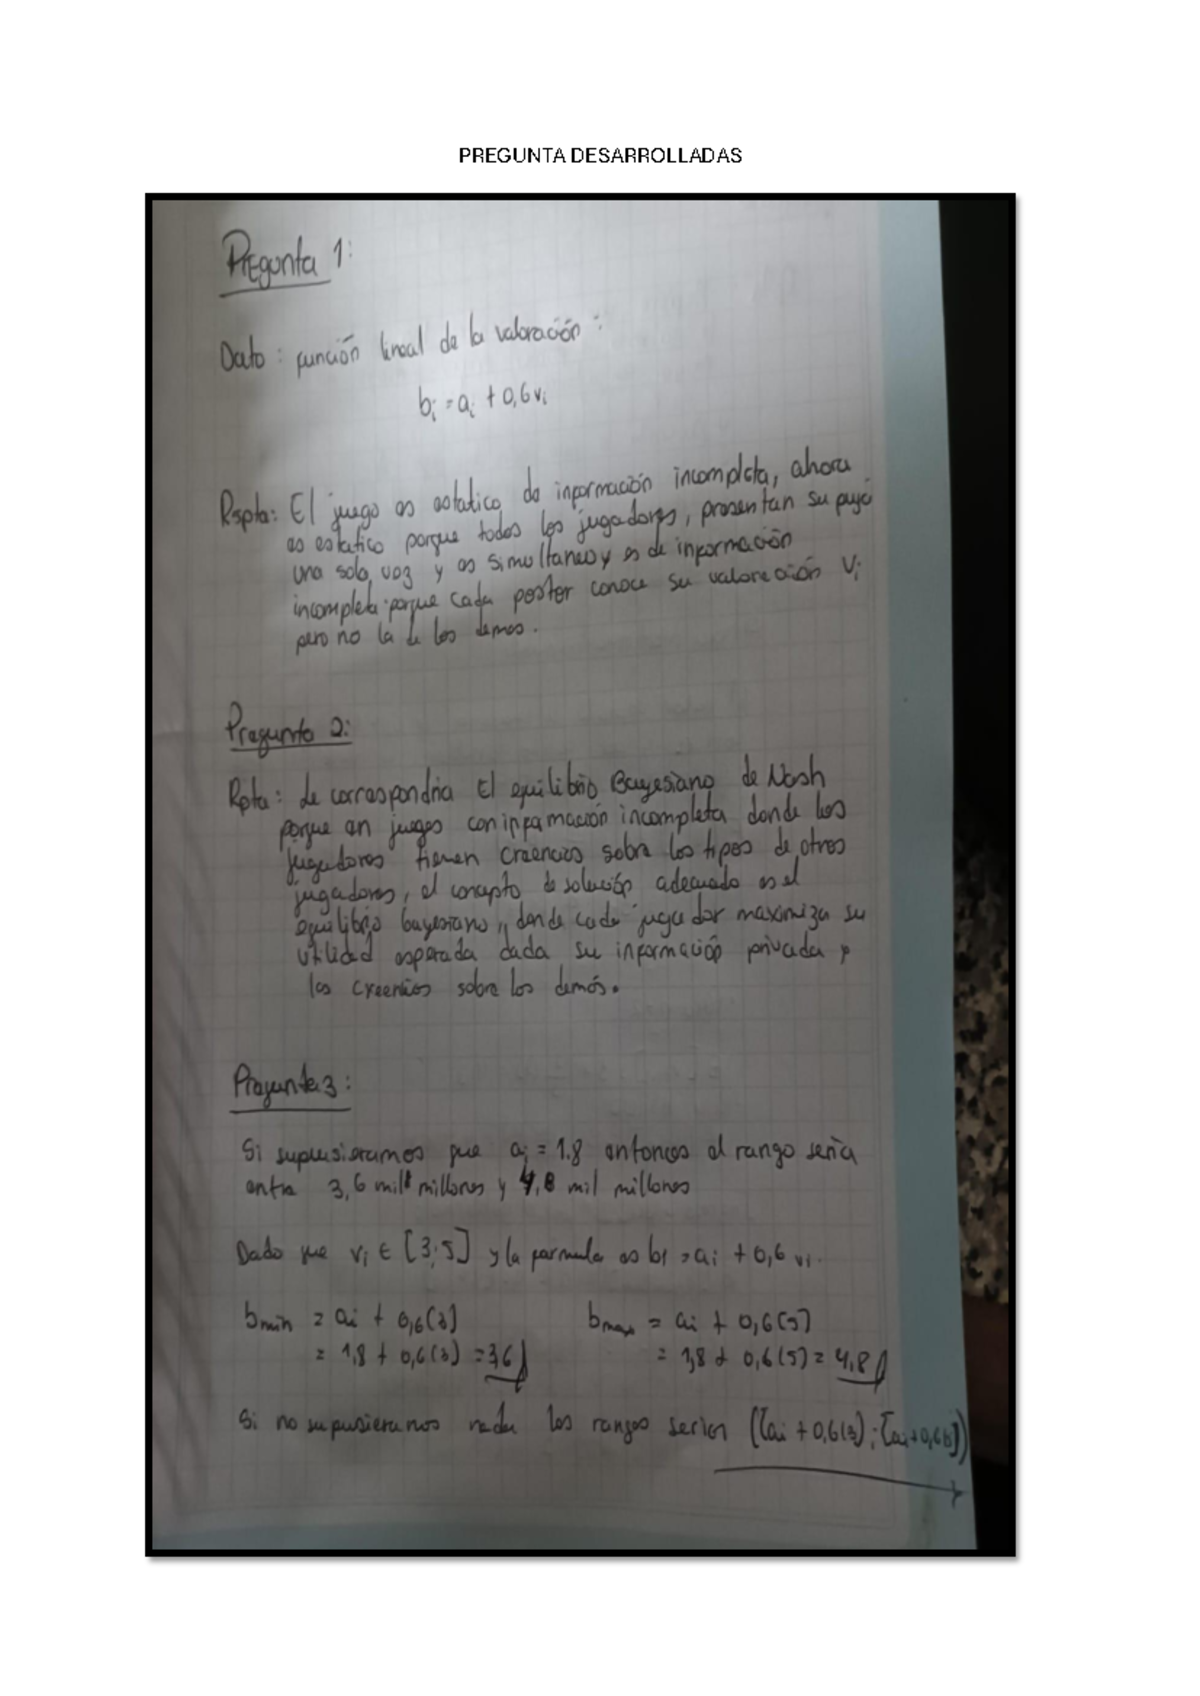 PREGUNTA DESARROLLADAS
Pregunta 1:
Dato: función lineal de la valoración:
bi = ai + 0,6vi
Rspta: El juego es estatico de información incompleta, ahora
es estatico porque todos los jugadores, presentan su puja
una sola vez y es simultaneo y es de información
incompleta porque cada postor conoce su valoración Vi
pero no la de los demas.
Pregunta 2:
Rpta: le correspondria El equilibrio Bayesiano de Nash
porque en juegos con información incompleta donde los
jugadores tienen creencias sobre los tipos de otros
jugadores, el concepto de solución adecuado es el
equilibrio bayesiano, donde cada jugador maximiza su
utilidad esperada dada su información privada y
las creencias sobre los demás.
Pregunta 3:
Si supusieramos que ai = 1.8 entonces el rango seria
entre 3,6 mil millones y 4,8 mil millones
Dado que vi ∈ [3;5] y la formula es bi = ai + 0,6 vi.
bmin = ai + 0,6(3) bmax = ai + 0,6(5)
= 1,8 + 0,6(3) = 3,6 = 1,8 + 0,6(5) = 4,8
Si no supusieramos nada los rangos serian ([ai + 0,6(3); [ai+0,6(5)])